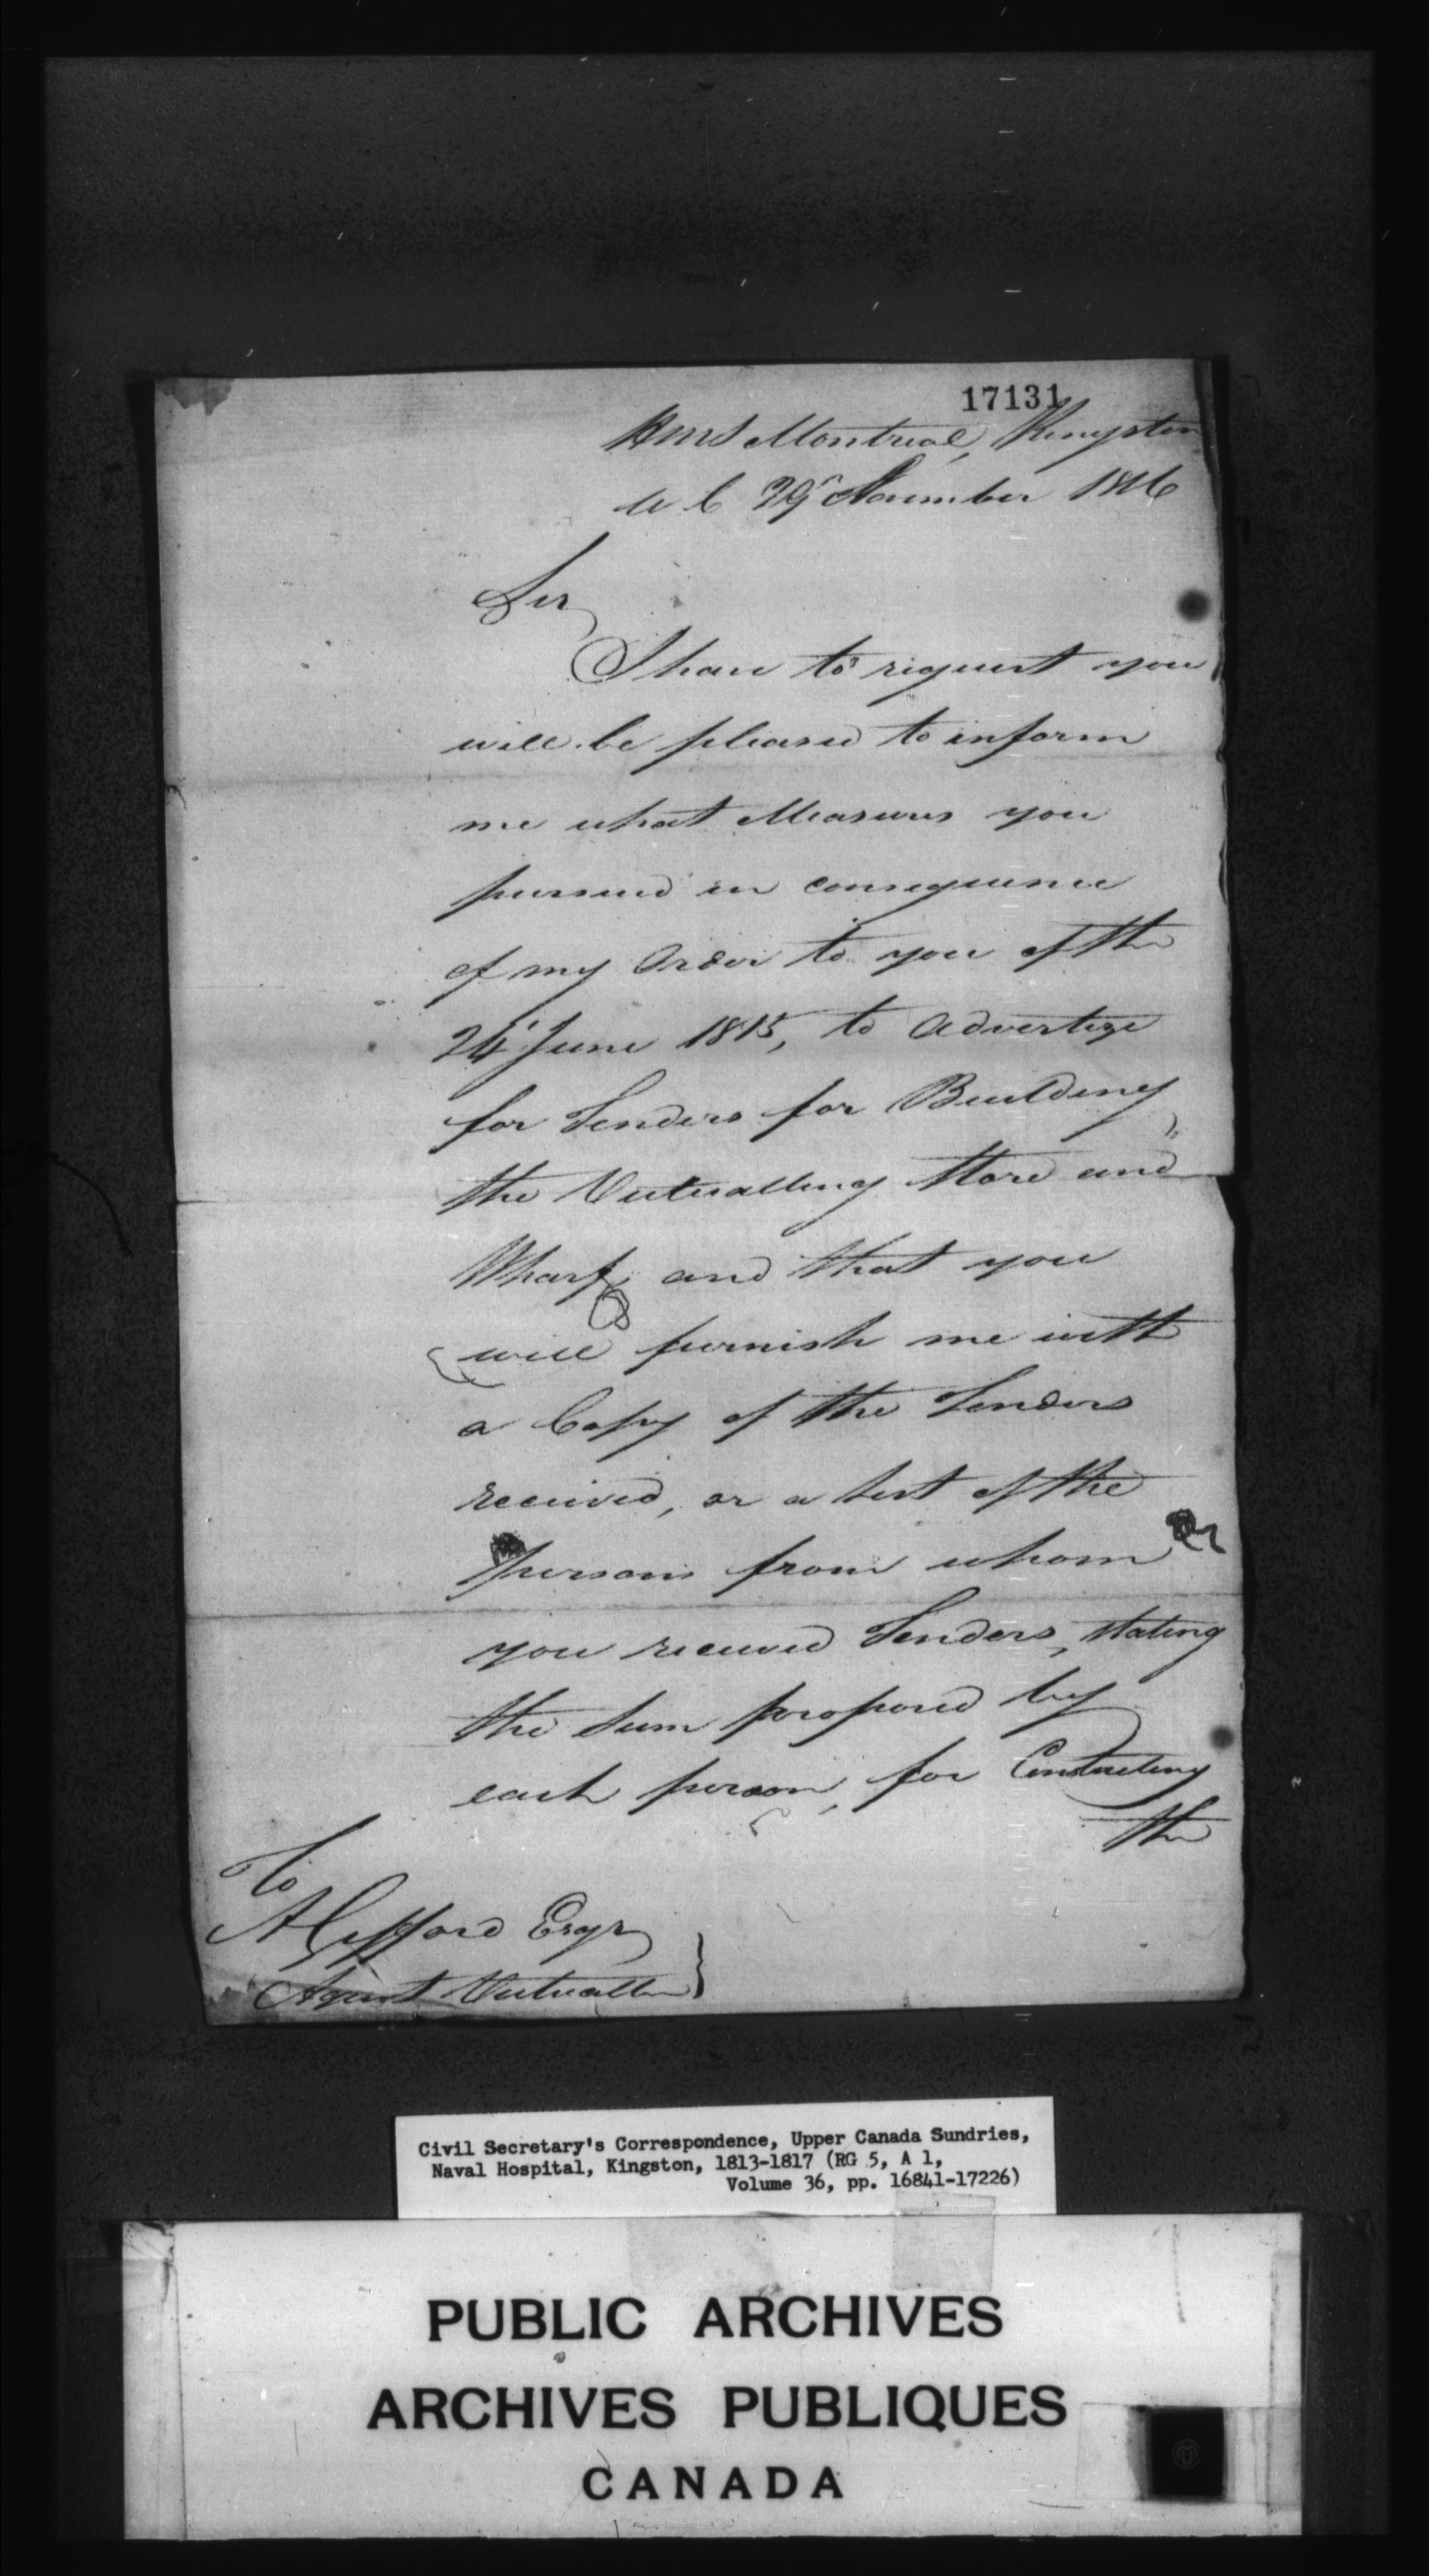 17131
HMS Montreal, Kingston
U C 29 November 1816
Sir,
I have to request you
will be pleased to inform
me what Measures you
pursued in consequence
of my Order to you of the
24 June 1815, to Advertize
for Tenders for Building
the Victualling Store and
Wharf, and that you
will furnish me with
a Copy of the Tenders
received, or a list of the
persons from whom
you received Tenders, stating
the Sum proposed by
each person, for Contracting
the
To
A Gifford Esqr
Agent Victualler
Civil Secretary's Correspondence, Upper Canada Sundries,
Naval Hospital, Kingston, 1813-1817 (RG 5, A 1,
Volume 36, pp. 16841-17226)
PUBLIC ARCHIVES
ARCHIVES PUBLIQUES
CANADA